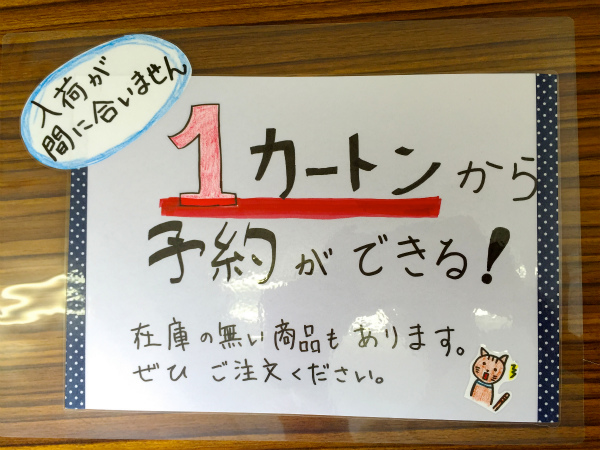 入荷が
間に合いません
1カートンから
予約ができる!
在庫の無い商品もあります。
ぜひ ご注文ください。